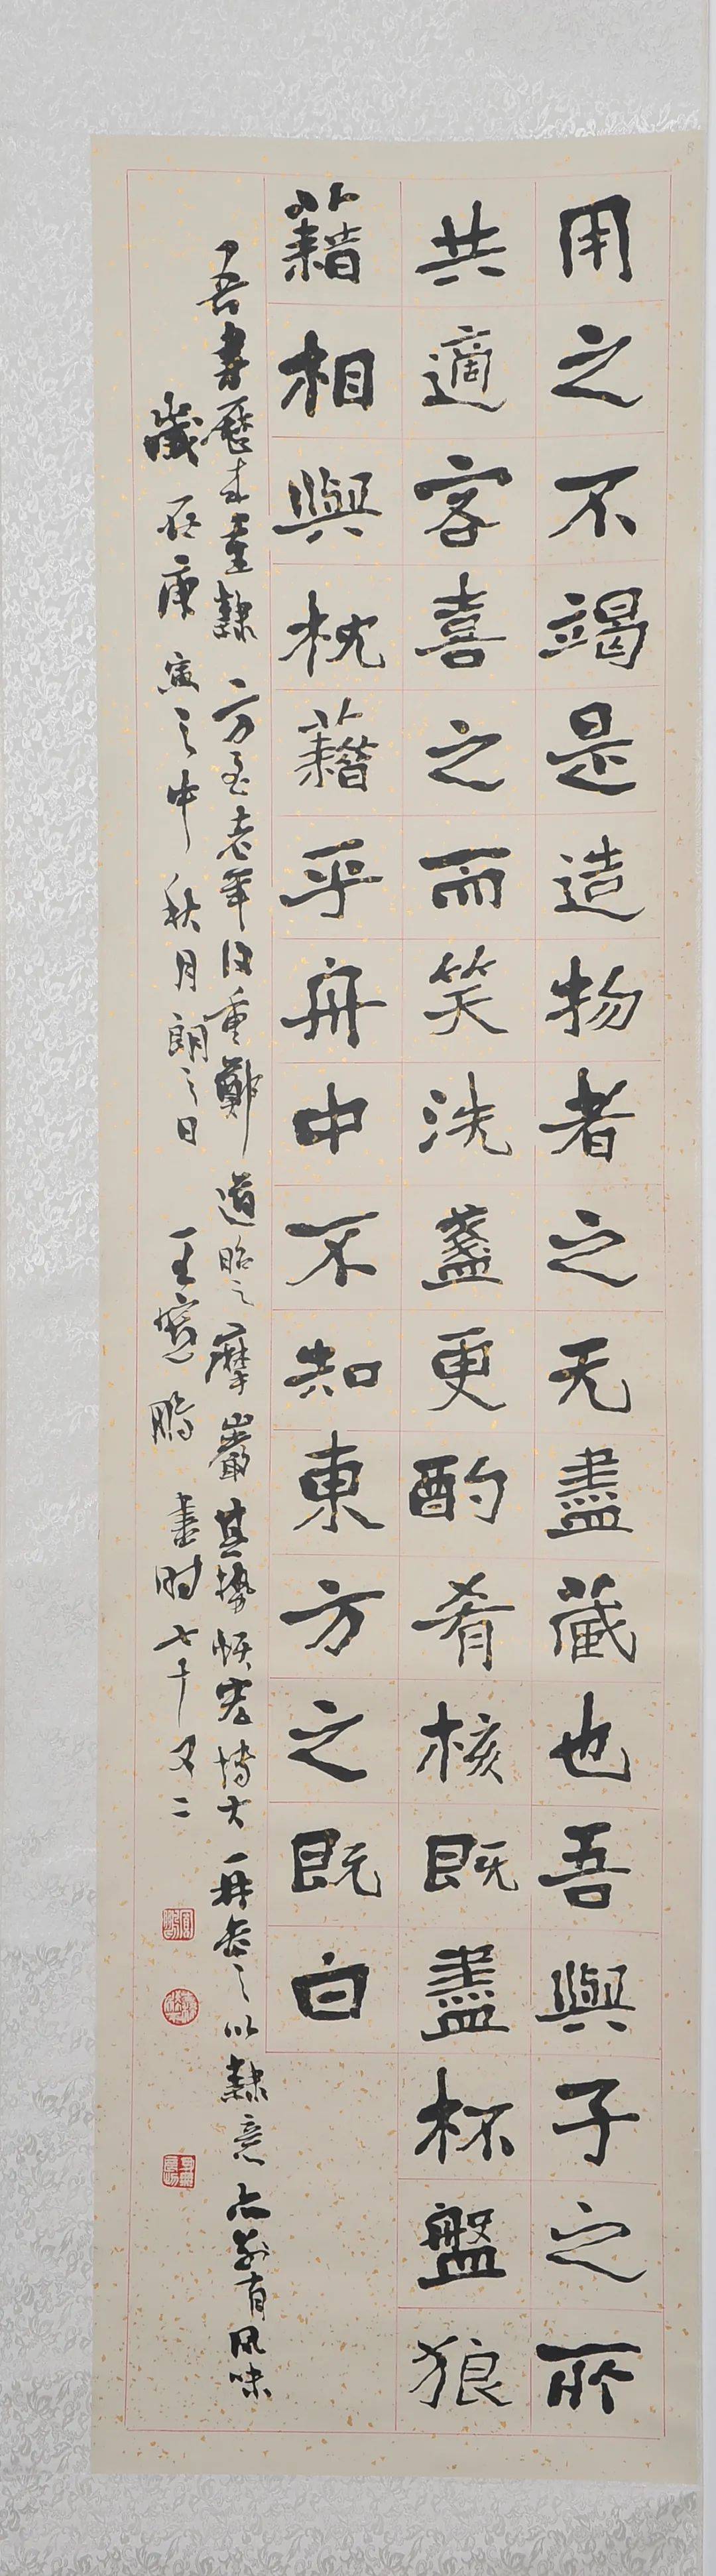 用之不竭是造物者之无盡藏也吾與子之所
共適客喜之而笑洗盞更酌肴核既盡杯盤狼
藉相與枕藉乎舟中不知東方之既白
吾書歷來重隸方至老年役重鄭道昭之摩巖其勢恢宏博大再參之以隸意亦翁有風味
歲在庚寅之中秋月朗之日 王寬鵬書时七十又二